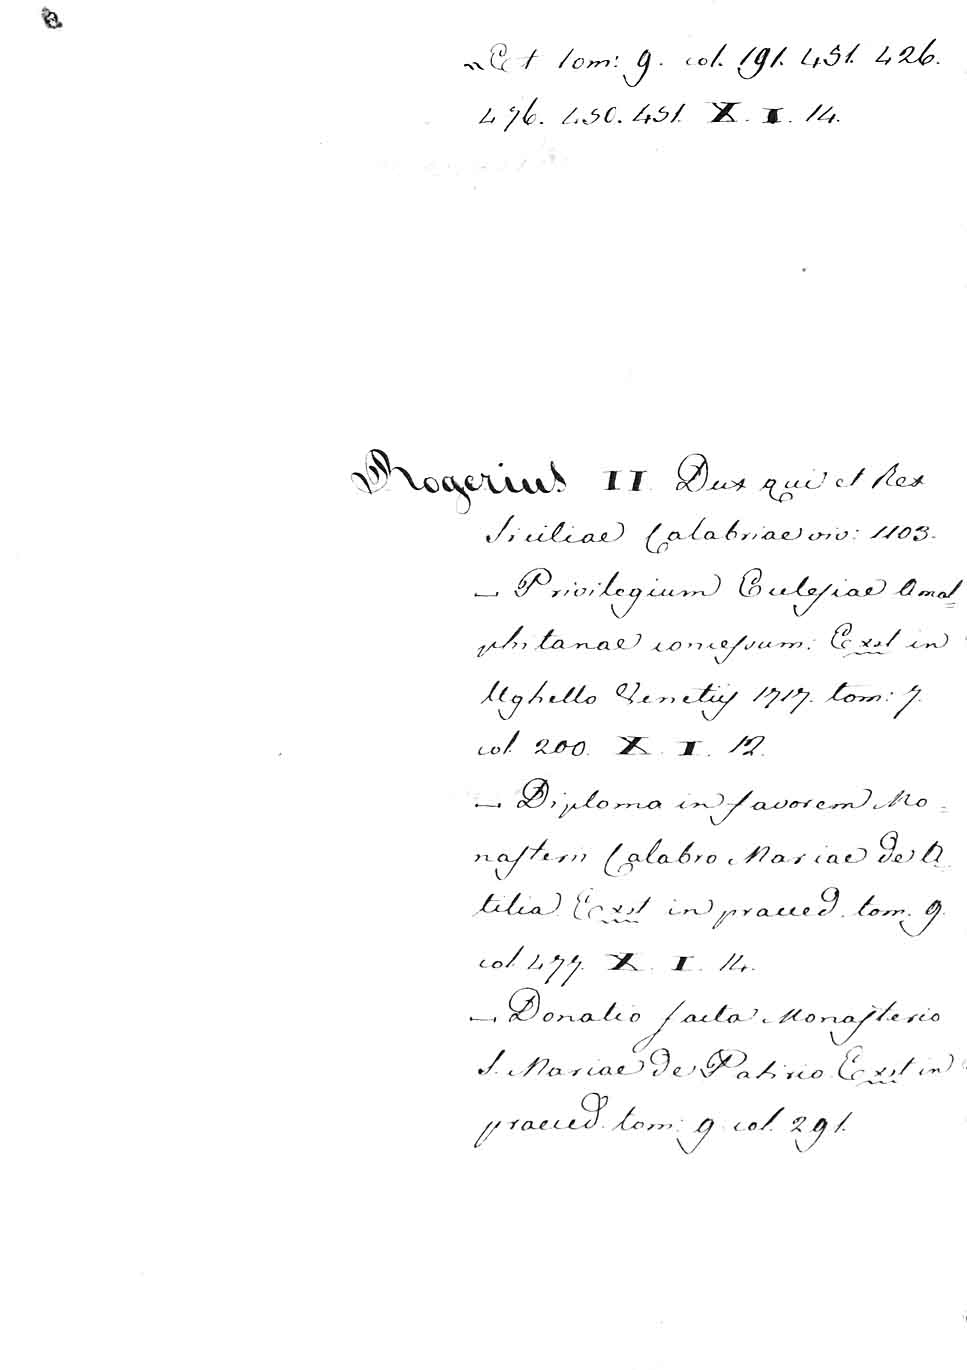 Et tom: 9. col. 191. 451. 426.
476. 450. 451. X. I. 14.
Rogerius II Dux qui et Rex
Siciliae Calabriae viv: 1103.
— Privilegium Ecclesiae Amal=
phitanae concessum: Exst in
Ughello Venetijs 1717. tom: 7.
col. 200. X. I. 12.
— Diploma in favorem Mo=
nasterii Calabro Mariae de A
tilia. Exst in praeced. tom. 9.
col. 477. X. I. 14.
— Donatio facta Monasterio
S. Mariae de Patirio. Exst in
praeced. tom: 9. col. 291.